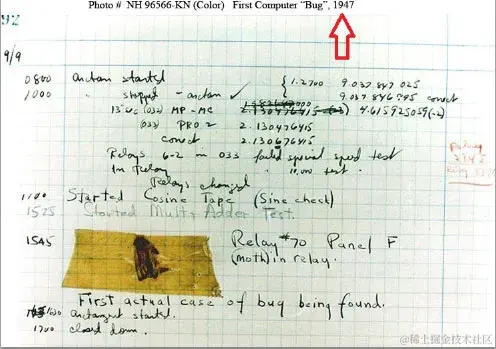 Photo # NH 96566-KN (Color) First Computer "Bug", 1947
92
9/9
0800 antan started
1000 " stopped - antan ✓ { 1.2700 9.037 847 025
9.037 846 995 correct
13" uc (032) MP - MC 2.130476415 4.615925059(-2)
(033) PRO 2 2.130476415
correct 2.130676415
Relays 6-2 in 033 failed special speed test
In Relay " 10.000 test.
Relays changed
1100 Started Cosine Tape (Sine check)
1525 Started Mult + Adder Test.
1545 Relay #70 Panel F
(moth) in relay.
First actual case of bug being found.
1630 antangent started.
1700 closed down.
@稀土掘金技术社区